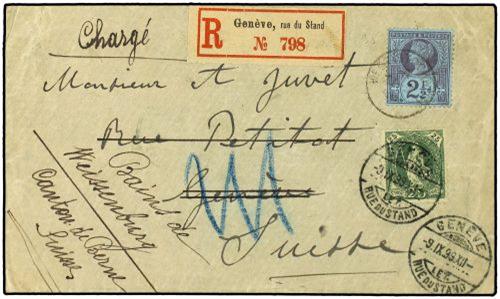 Chargé
R
Genève, rue du Stand
№ 798
Monsieur A Juvet
Rue Petitot
Genève
Suisse
Bains de
Weissenburg
Canton de Berne
Suisse
POSTAGE & REVENUE
2½
RUE DU STAND
GENÈVE
-9.IX.93.XII-
LET.
RUE DU STAND